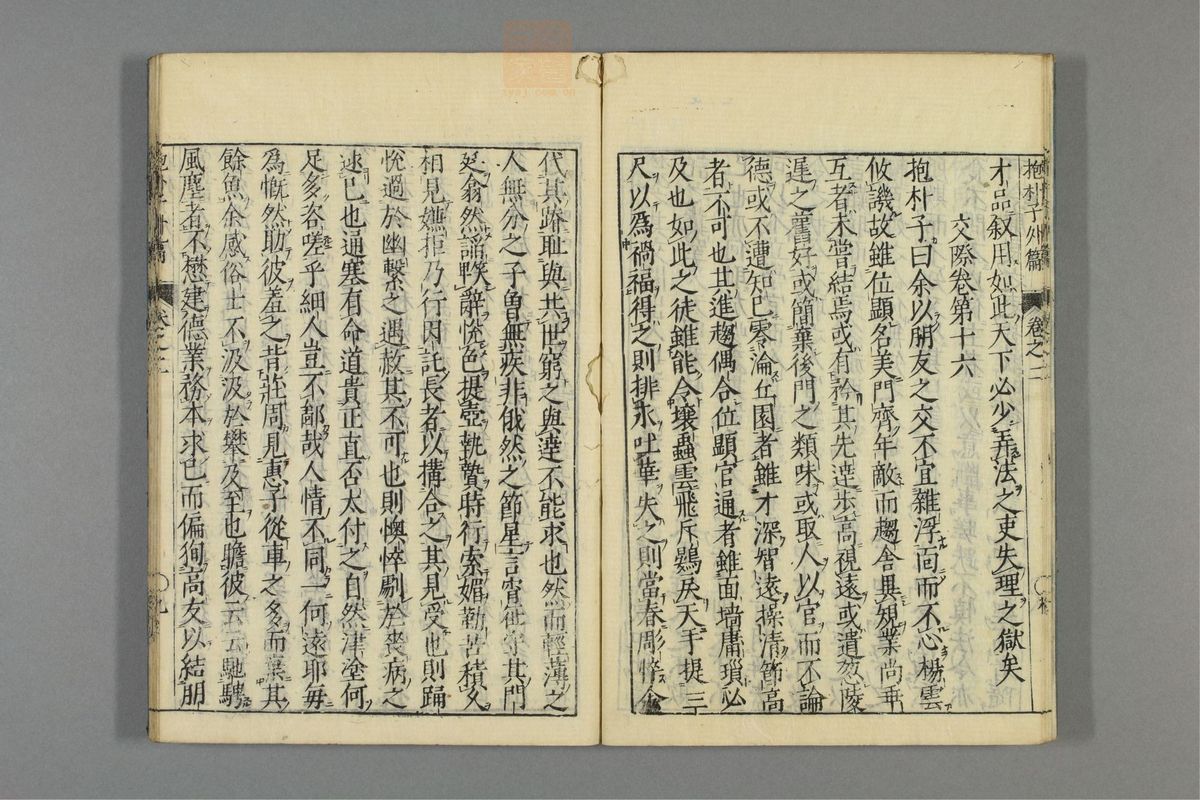 抱朴子外篇　卷之二
才品敘用如此天下必少弄法之吏失理之獄矣
交際卷第十六
抱朴子曰余以朋友之交不宜雜浮面而不心楊雲
攸譏故雖位顯名美門齊年敵而趨舍異規業尚乖
互者未嘗結焉或有矜其先達步高視遠或遺忽陵
遲之舊好或簡棄後門之類味或取人以官而不論
德或不遭知己零淪丘園者雖才深智遠操清節高
者不可也其進趨偶合位顯官通者雖面墙庸瑣必
及也如此之徒雖能令壤蟲雲飛斥鷃戾天手捉三
尺以爲禍福得之則排氷吐華失之則當春彫悴余
代其踧耻與共世窮之與達不能求也然而輕薄之
人無分之子曾無疾非俄然之節星言宵征守其門
廷翕然謟笑卑辭悅色提壺執贄時行索媚勤苦積久
相見嫌拒乃行因託長者以搆合之其見受也則踊
悅過於幽繫之遇赦其不可也則懊悴劇於喪病之
逮已也通塞有命道貴正直否太付之自然津塗何
足多咨嗟乎細人豈不鄙哉人情不同一何遠耶每
爲慨然助彼羞之昔莊周見惠子從車之多而棄其
餘魚余感俗士不汲汲於攀及至也瞻彼云云馳騁
風塵者不懋建德業務本求己而偏狥高友以結朋